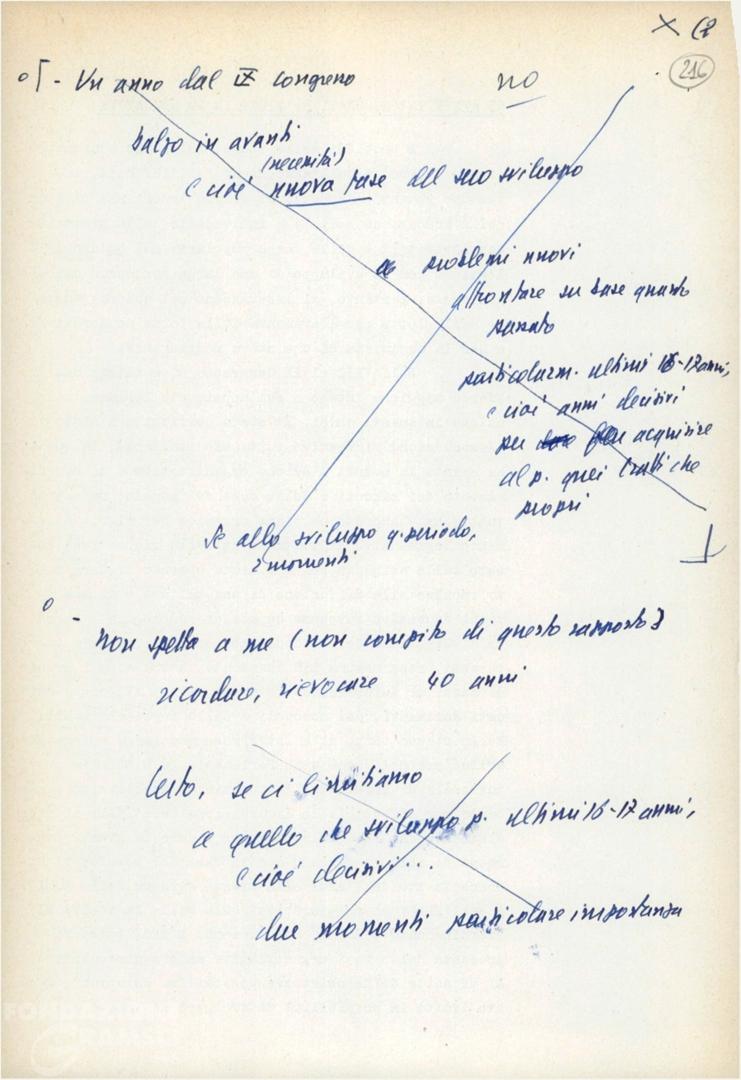 X (2
216
o [ - Un anno dal IX congresso
no
balzo in avanti
(necessità)
cioè nuova fase del suo sviluppo
problemi nuovi
affrontare su base quanto
passato
particolarm. ultimi 16-17 anni,
cioè anni decisivi
per acquisire
al p. quei tratti che
propri
Se allo sviluppo q. periodo,
2 momenti
]
o - non spetta a me (non compito di questo rapporto)
ricordare, rievocare 40 anni
Certo, se ci limitiamo
a quello che sviluppo p. ultimi 16-17 anni,
cioè decisivi...
due momenti particolare importanza
FONDAZIONE
GRAMSCI